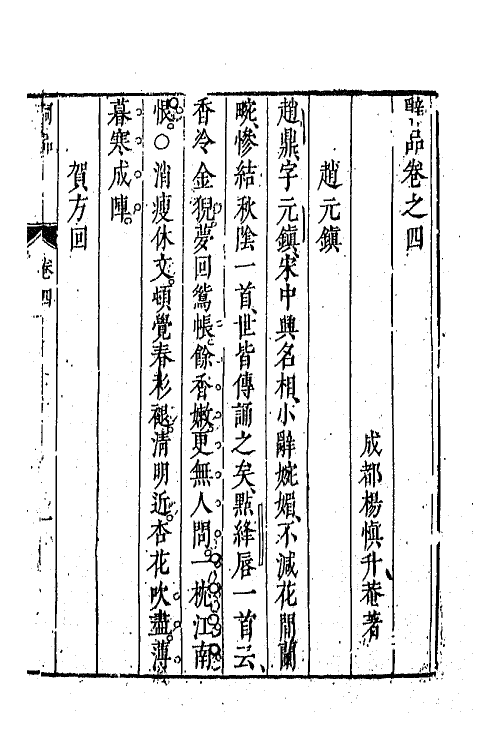 辭品卷之四
成都楊慎升菴著
趙元鎮
趙鼎字元鎮宋中興名相小辭婉媚不減花間蘭
畹慘結秋陰一首世皆傳誦之矣點絳唇一首云
香冷金猊夢回鴛帳餘香嫩更無人問一枕江南
恨○消瘦休文頓覺春衫褪清明近杏花吹盡薄
暮寒成陣
賀方回
詞品 卷四 一